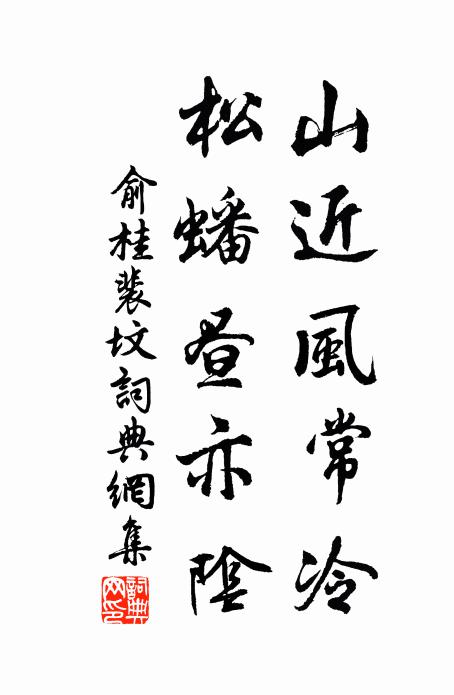 山近風常冷
松蟠昼亦陰
俞桂裴坟詞典網集
詞典網印